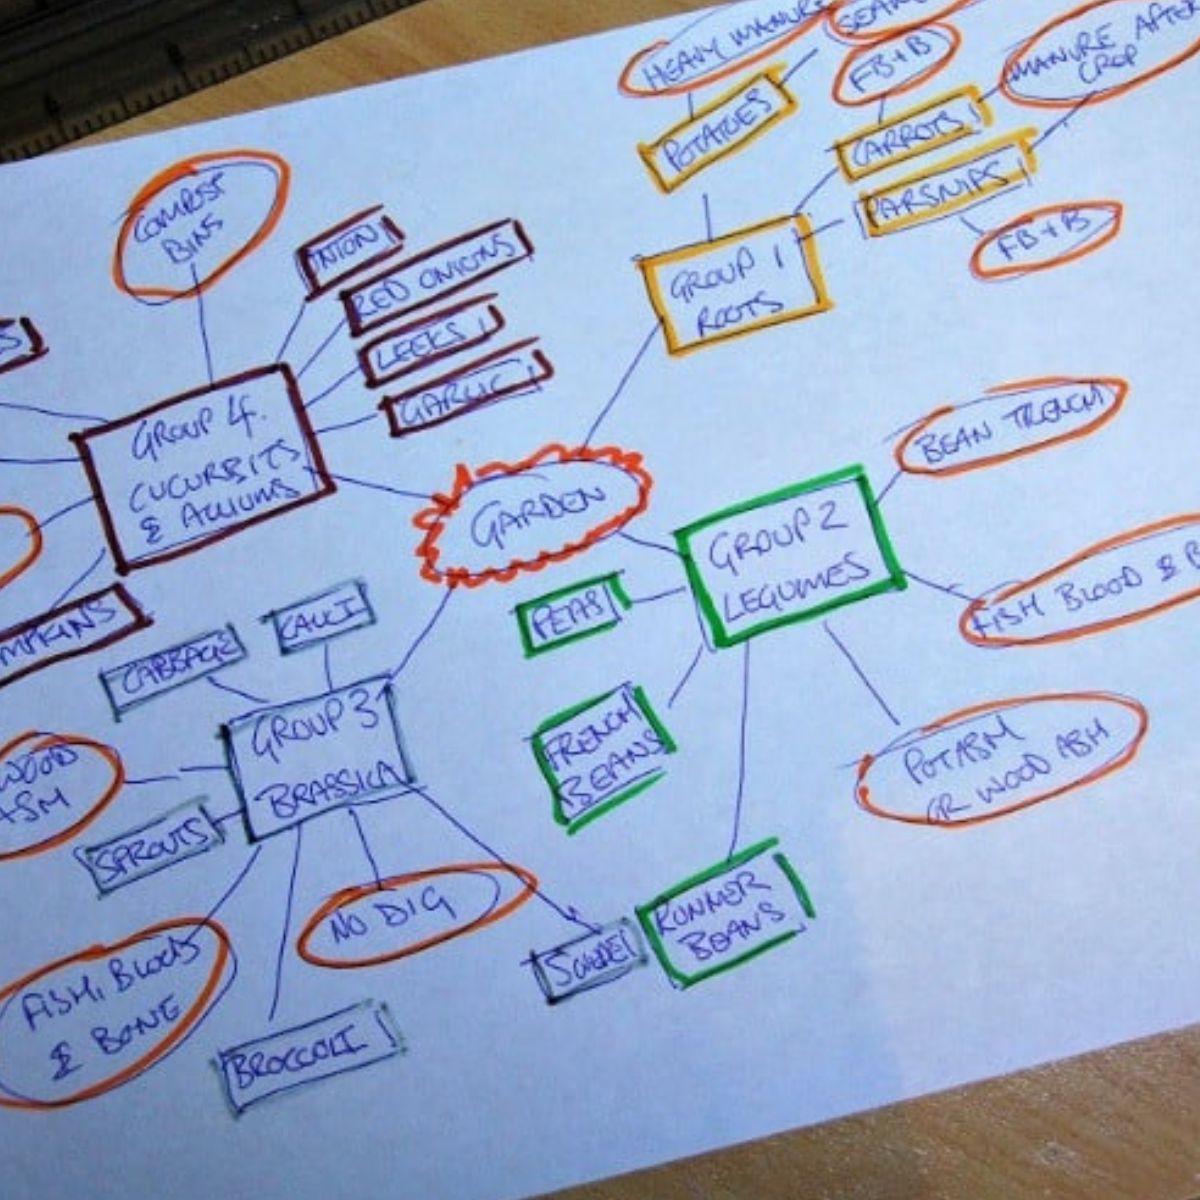 HEAVY MANURE
FB+B
MANURE AFTER
CROP
POTATOES
CARROTS
PARSNIPS
FB+B
GROUP 1
ROOTS
COMPOST
BINS
ONION
RED ONIONS
LEEKS
GARLIC
GROUP 4.
CUCURBITS
& ALLIUMS
GARDEN
BEAN TRENCH
GROUP 2
LEGUMES
FISH BLOOD & B
PEAS
FRENCH
BEANS
POTASH
OR WOOD ASH
RUNNER
BEANS
MPKINS
CABBAGE
CAULI
GROUP 3
BRASSICA
WOOD
ASH
SPROUTS
NO DIG
SWEDE
FISH, BLOOD
& BONE
BROCCOLI